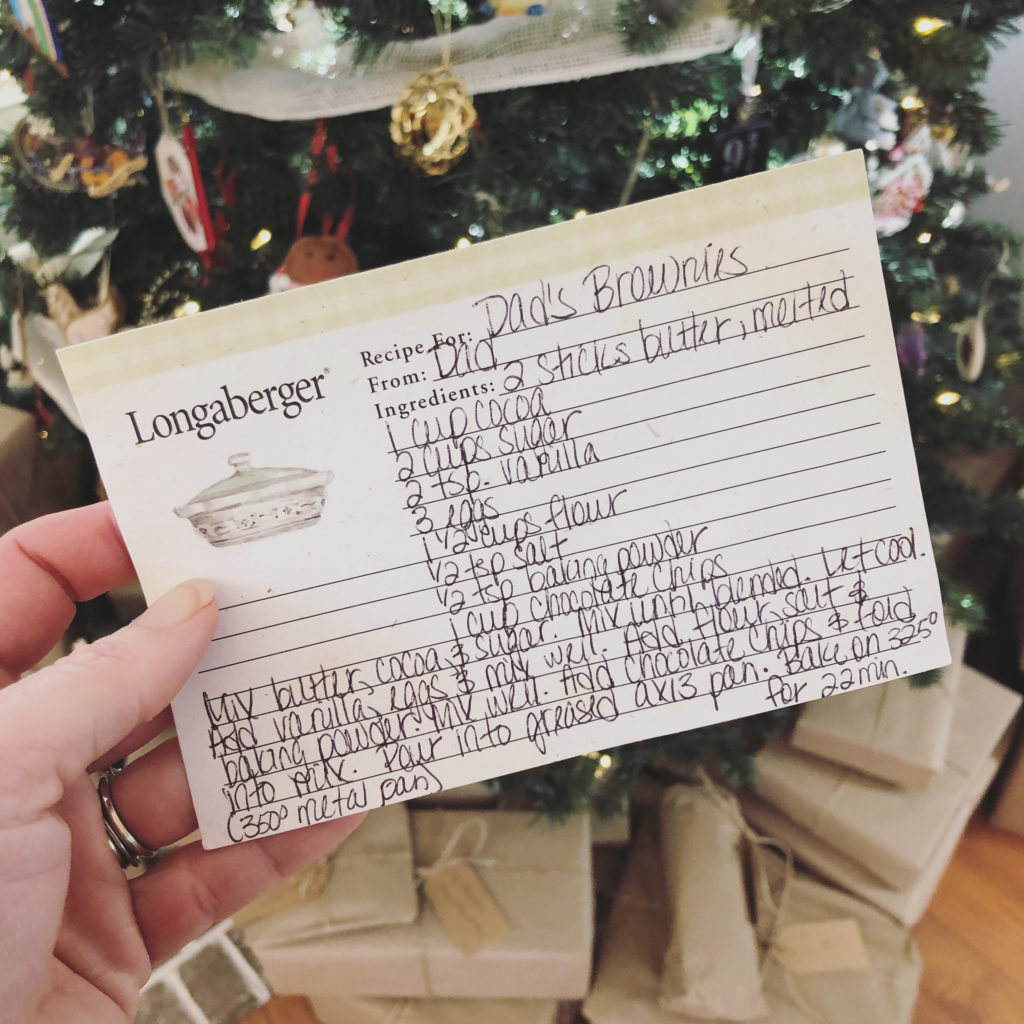 Recipe For: Dad's Brownies
From: Dad
Ingredients: 2 sticks butter, melted
Longaberger®
1 cup cocoa
2 cups sugar
2 tsp. vanilla
3 eggs
1 1/2 cups flour
1/2 tsp salt
1/2 tsp baking powder
1 cup chocolate chips
Mix butter, cocoa & sugar. Mix until blended. Let cool.
Add vanilla, eggs & mix well. Add flour, salt &
baking powder. Mix well. Add chocolate chips & fold
into mix. Pour into greased 9x13 pan. Bake on 325°
for 22 min.
(350° metal pan)
91